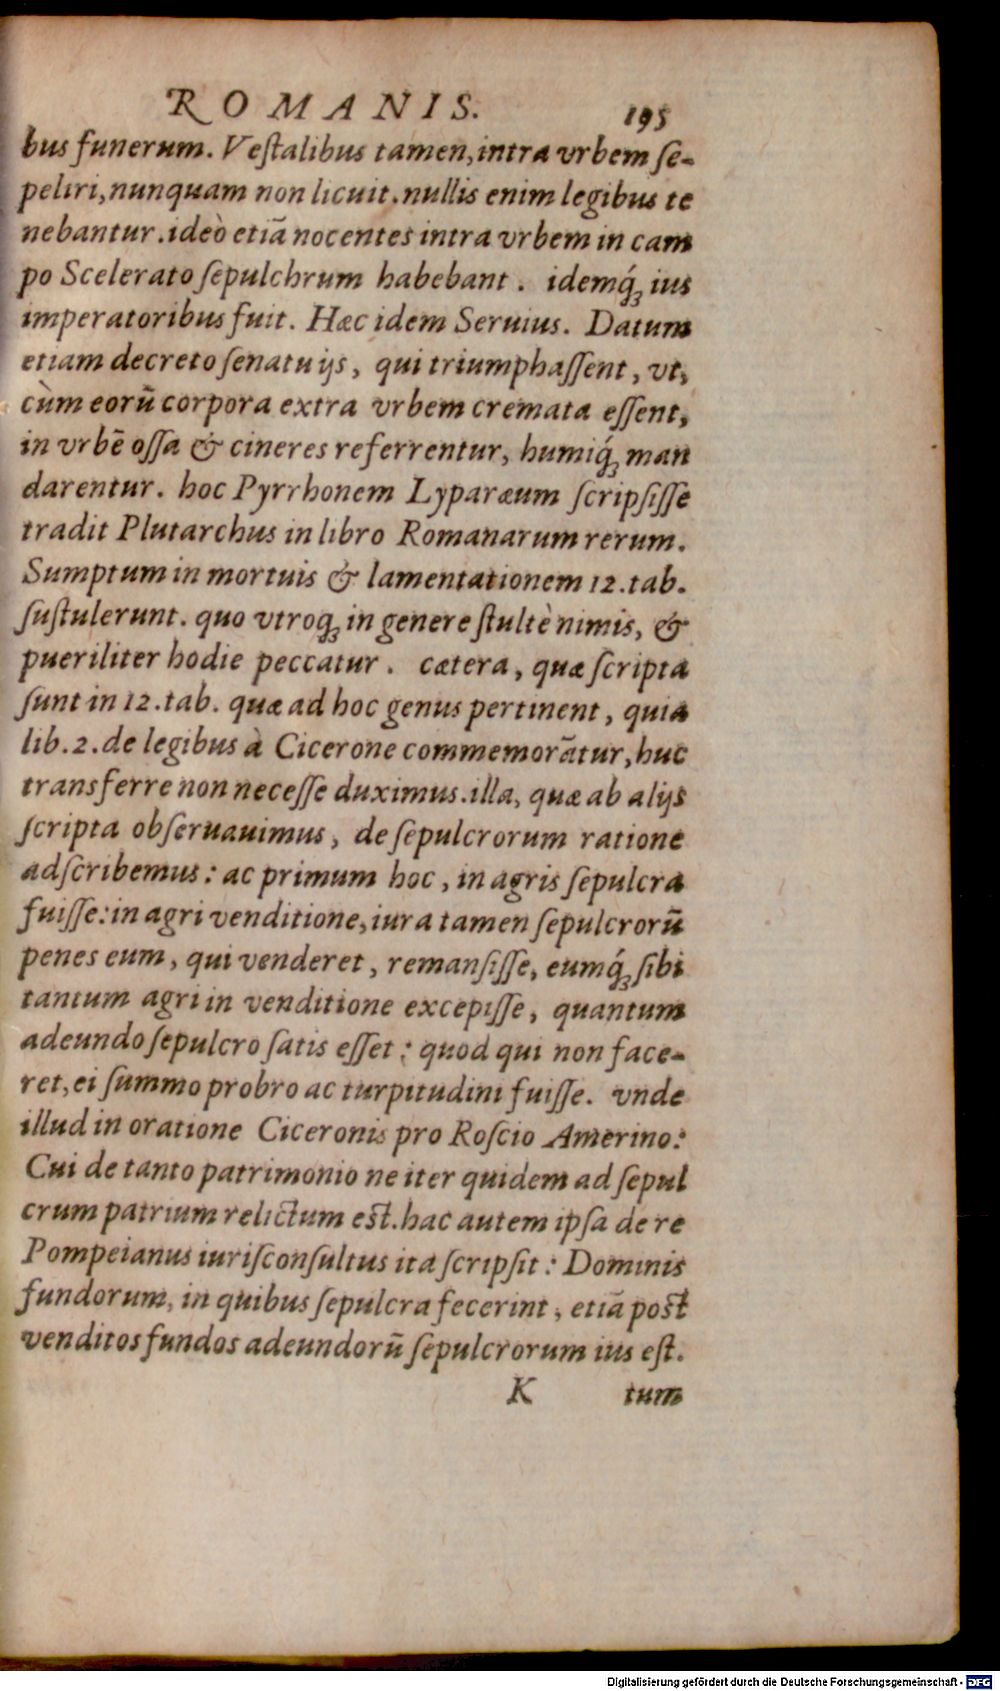 ROMANIS. 195
bus funerum. Veſtalibus tamen, intra vrbem ſe-
peliri, nunquam non licuit. nullis enim legibus te
nebantur. ideò etiā nocentes intra vrbem in cam
po Scelerato ſepulchrum habebant. idemq́ꝫ ius
imperatoribus fuit. Hæc idem Seruius. Datum
etiam decreto ſenatu ijs, qui triumphaſſent, vt,
cùm eorū corpora extra vrbem cremata eſſent,
in vrbē oſſa & cineres referrentur, humiq́ꝫ man
darentur. hoc Pyrrhonem Lyparæum ſcripſiſſe
tradit Plutarchus in libro Romanarum rerum.
Sumptum in mortuis & lamentationem 12. tab.
ſuſtulerunt. quo vtroqꝫ in genere ſtultè nimis, &
pueriliter hodie peccatur. cætera, quæ ſcripta
ſunt in 12. tab. quæ ad hoc genus pertinent, quia
lib. 2. de legibus à Cicerone commemorātur, huc
transferre non neceſſe duximus. illa, quæ ab alijs
ſcripta obſeruauimus, de ſepulcrorum ratione
adſcribemus: ac primum hoc, in agris ſepulcra
fuiſſe: in agri venditione, iura tamen ſepulcrorū
penes eum, qui venderet, remanſiſſe, eumq́ꝫ ſibi
tantum agri in venditione excepiſſe, quantum
adeundo ſepulcro ſatis eſſet: quod qui non face-
ret, ei ſummo probro ac turpitudini fuiſſe. vnde
illud in oratione Ciceronis pro Roſcio Amerino:
Cui de tanto patrimonio ne iter quidem ad ſepul
crum patrium relictum eſt. hac autem ipſa de re
Pompeianus iuriſconſultus ita ſcripſit: Dominis
fundorum, in quibus ſepulcra fecerint, etiā poſt
venditos fundos adeundorū ſepulcrorum ius eſt.
K tum
Digitalisierung gefördert durch die Deutsche Forschungsgemeinschaft - DFG